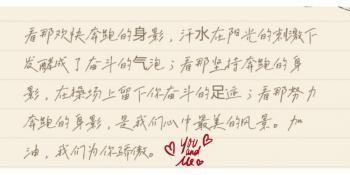 看那欢快奔跑的身影，汗水在阳光的刺激下
发酵成了奋斗的气泡；看那坚持奔跑的身
影，在操场上留下你奋斗的足迹；看那努力
奔跑的身影，是我们心中最美的风景。加
油，我们为你骄傲。
You
and
Me